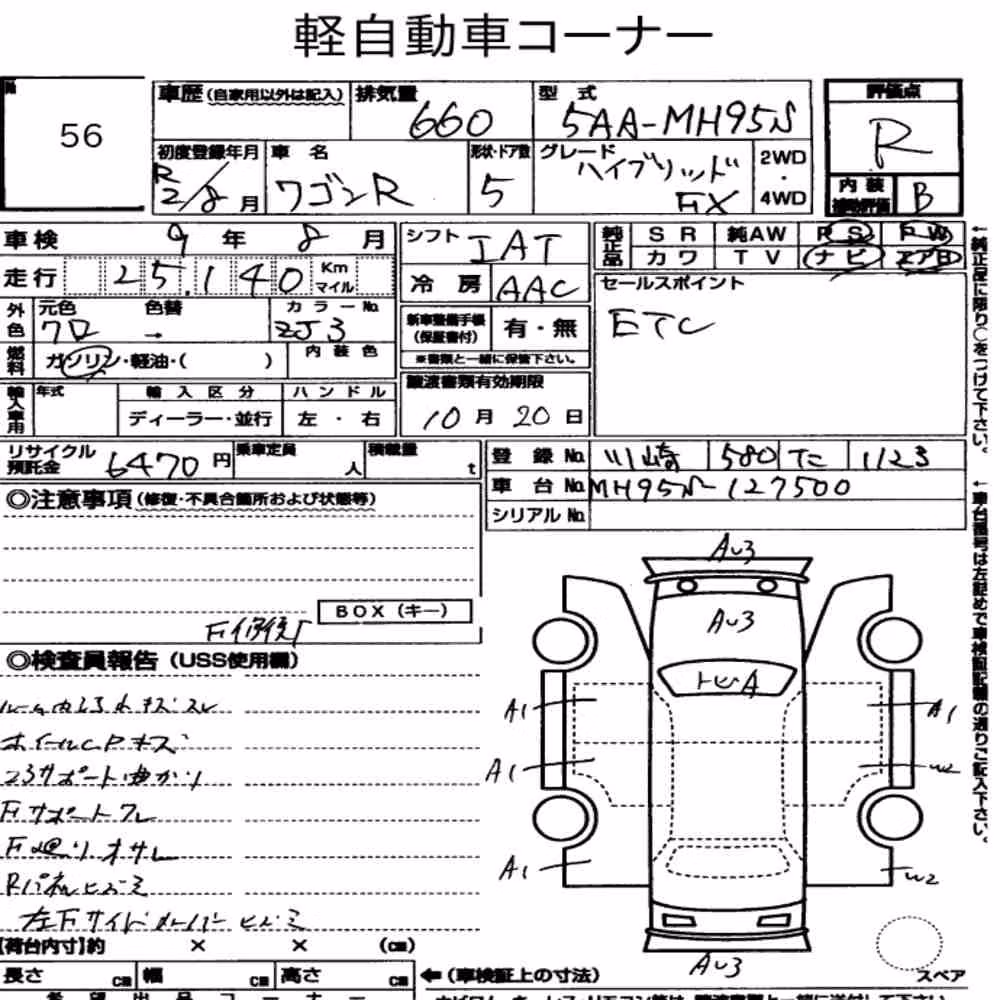 軽自動車コーナー
56
車歴 (自家用以外は記入)
排気量 660
型式 5AA-MH95S
評価点 R
初度登録年月 R2/8月
車名 ワゴンR
形状・ドア数 5
グレード ハイブリッド FX
2WD・4WD
内装補助評価 B
車検 9年 8月
シフト IAT
純正品 SR 純AW PS PW
カワ TV ナビ エアB
走行 25,140 Km マイル
冷房 AAC
セールスポイント
ETC
外色 元色 クロ → 色替
カラーNo. ZJ3
新車整備手帳(保証書付) 有・無
※書類と一緒に保管下さい。
燃料 ガソリン・軽油・( )
内装色
譲渡書類有効期限
10月20日
輸入車用 年式 輸入区分 ハンドル
ディーラー・並行 左・右
リサイクル預託金 6470円
乗車定員 人
積載量 t
登録No. 川崎 580 た 1123
車台No. MH95S-127500
シリアルNo.
←純正品に限り○をつけて下さい。
←車台番号は左詰めで車検証記載の通りご記入下さい。
◎注意事項 (修復・不具合箇所および状態等)
BOX (キー)
F修復
◎検査員報告 (USS使用欄)
ルーム内よごれキズスレ
ホイールCPキズ
コアサポート曲がり
Fサポートズレ
F廻りオサレ
Rパネルヒズミ
左Fサイドメンバーヒズミ
AU3
AU3
トビA
A1
A1
A1
W2
A1
W2
AU3
スペア
【荷台内寸】約 × × (cm)
長さ cm 幅 cm 高さ cm
←(車検証上の寸法)
希望出品コーナー